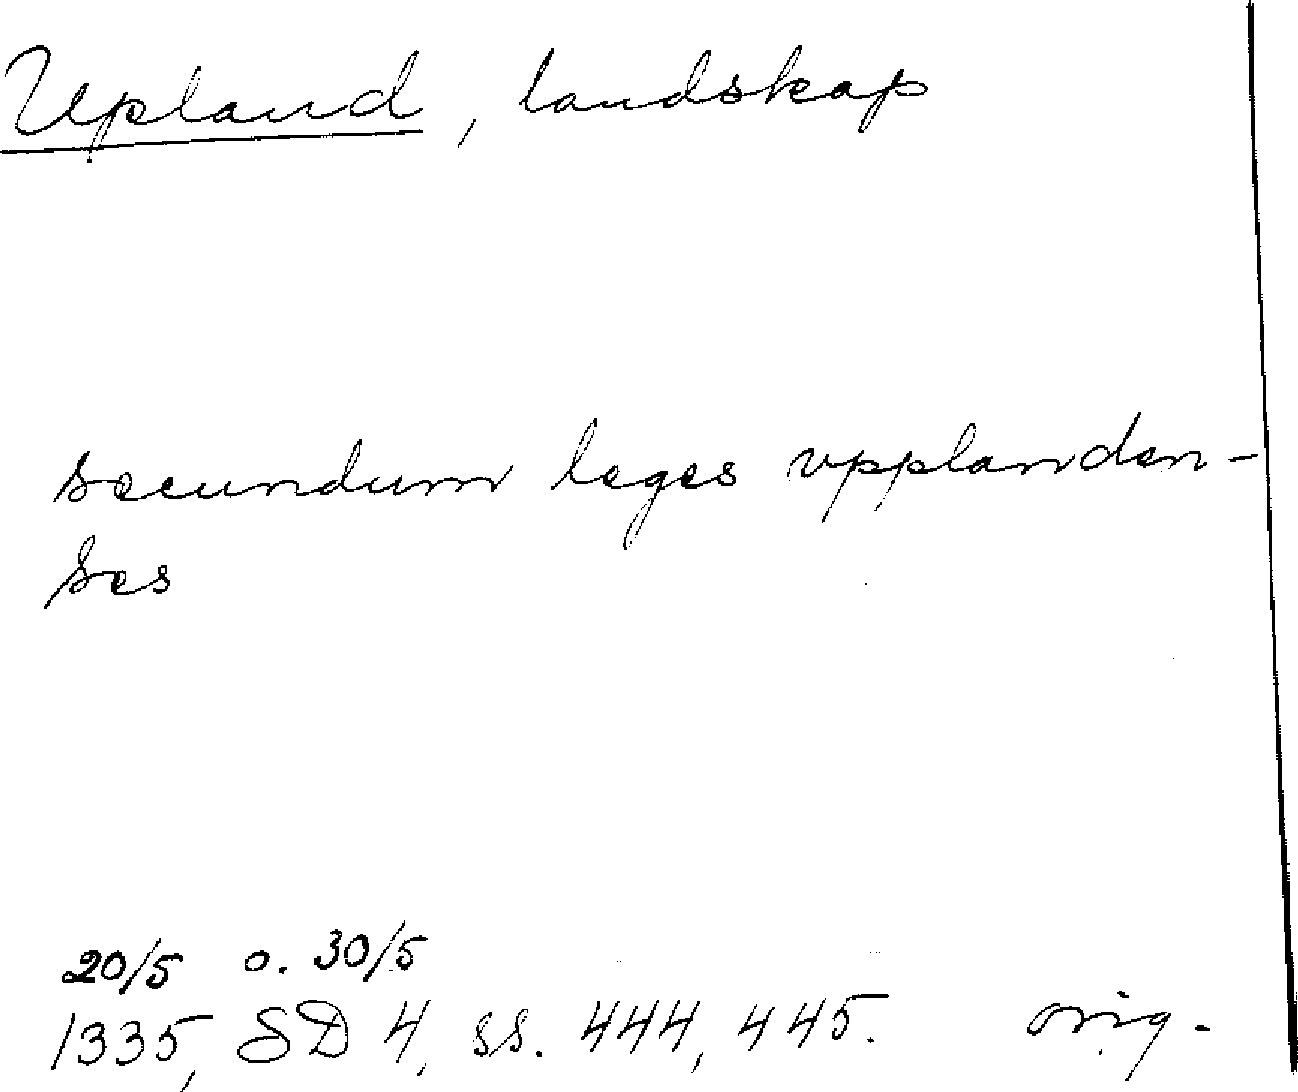 Upland, landskap
secundum leges vpplanden-
ses
20/5 o. 30/5
1335, SD 4, ss. 444, 445. orig.